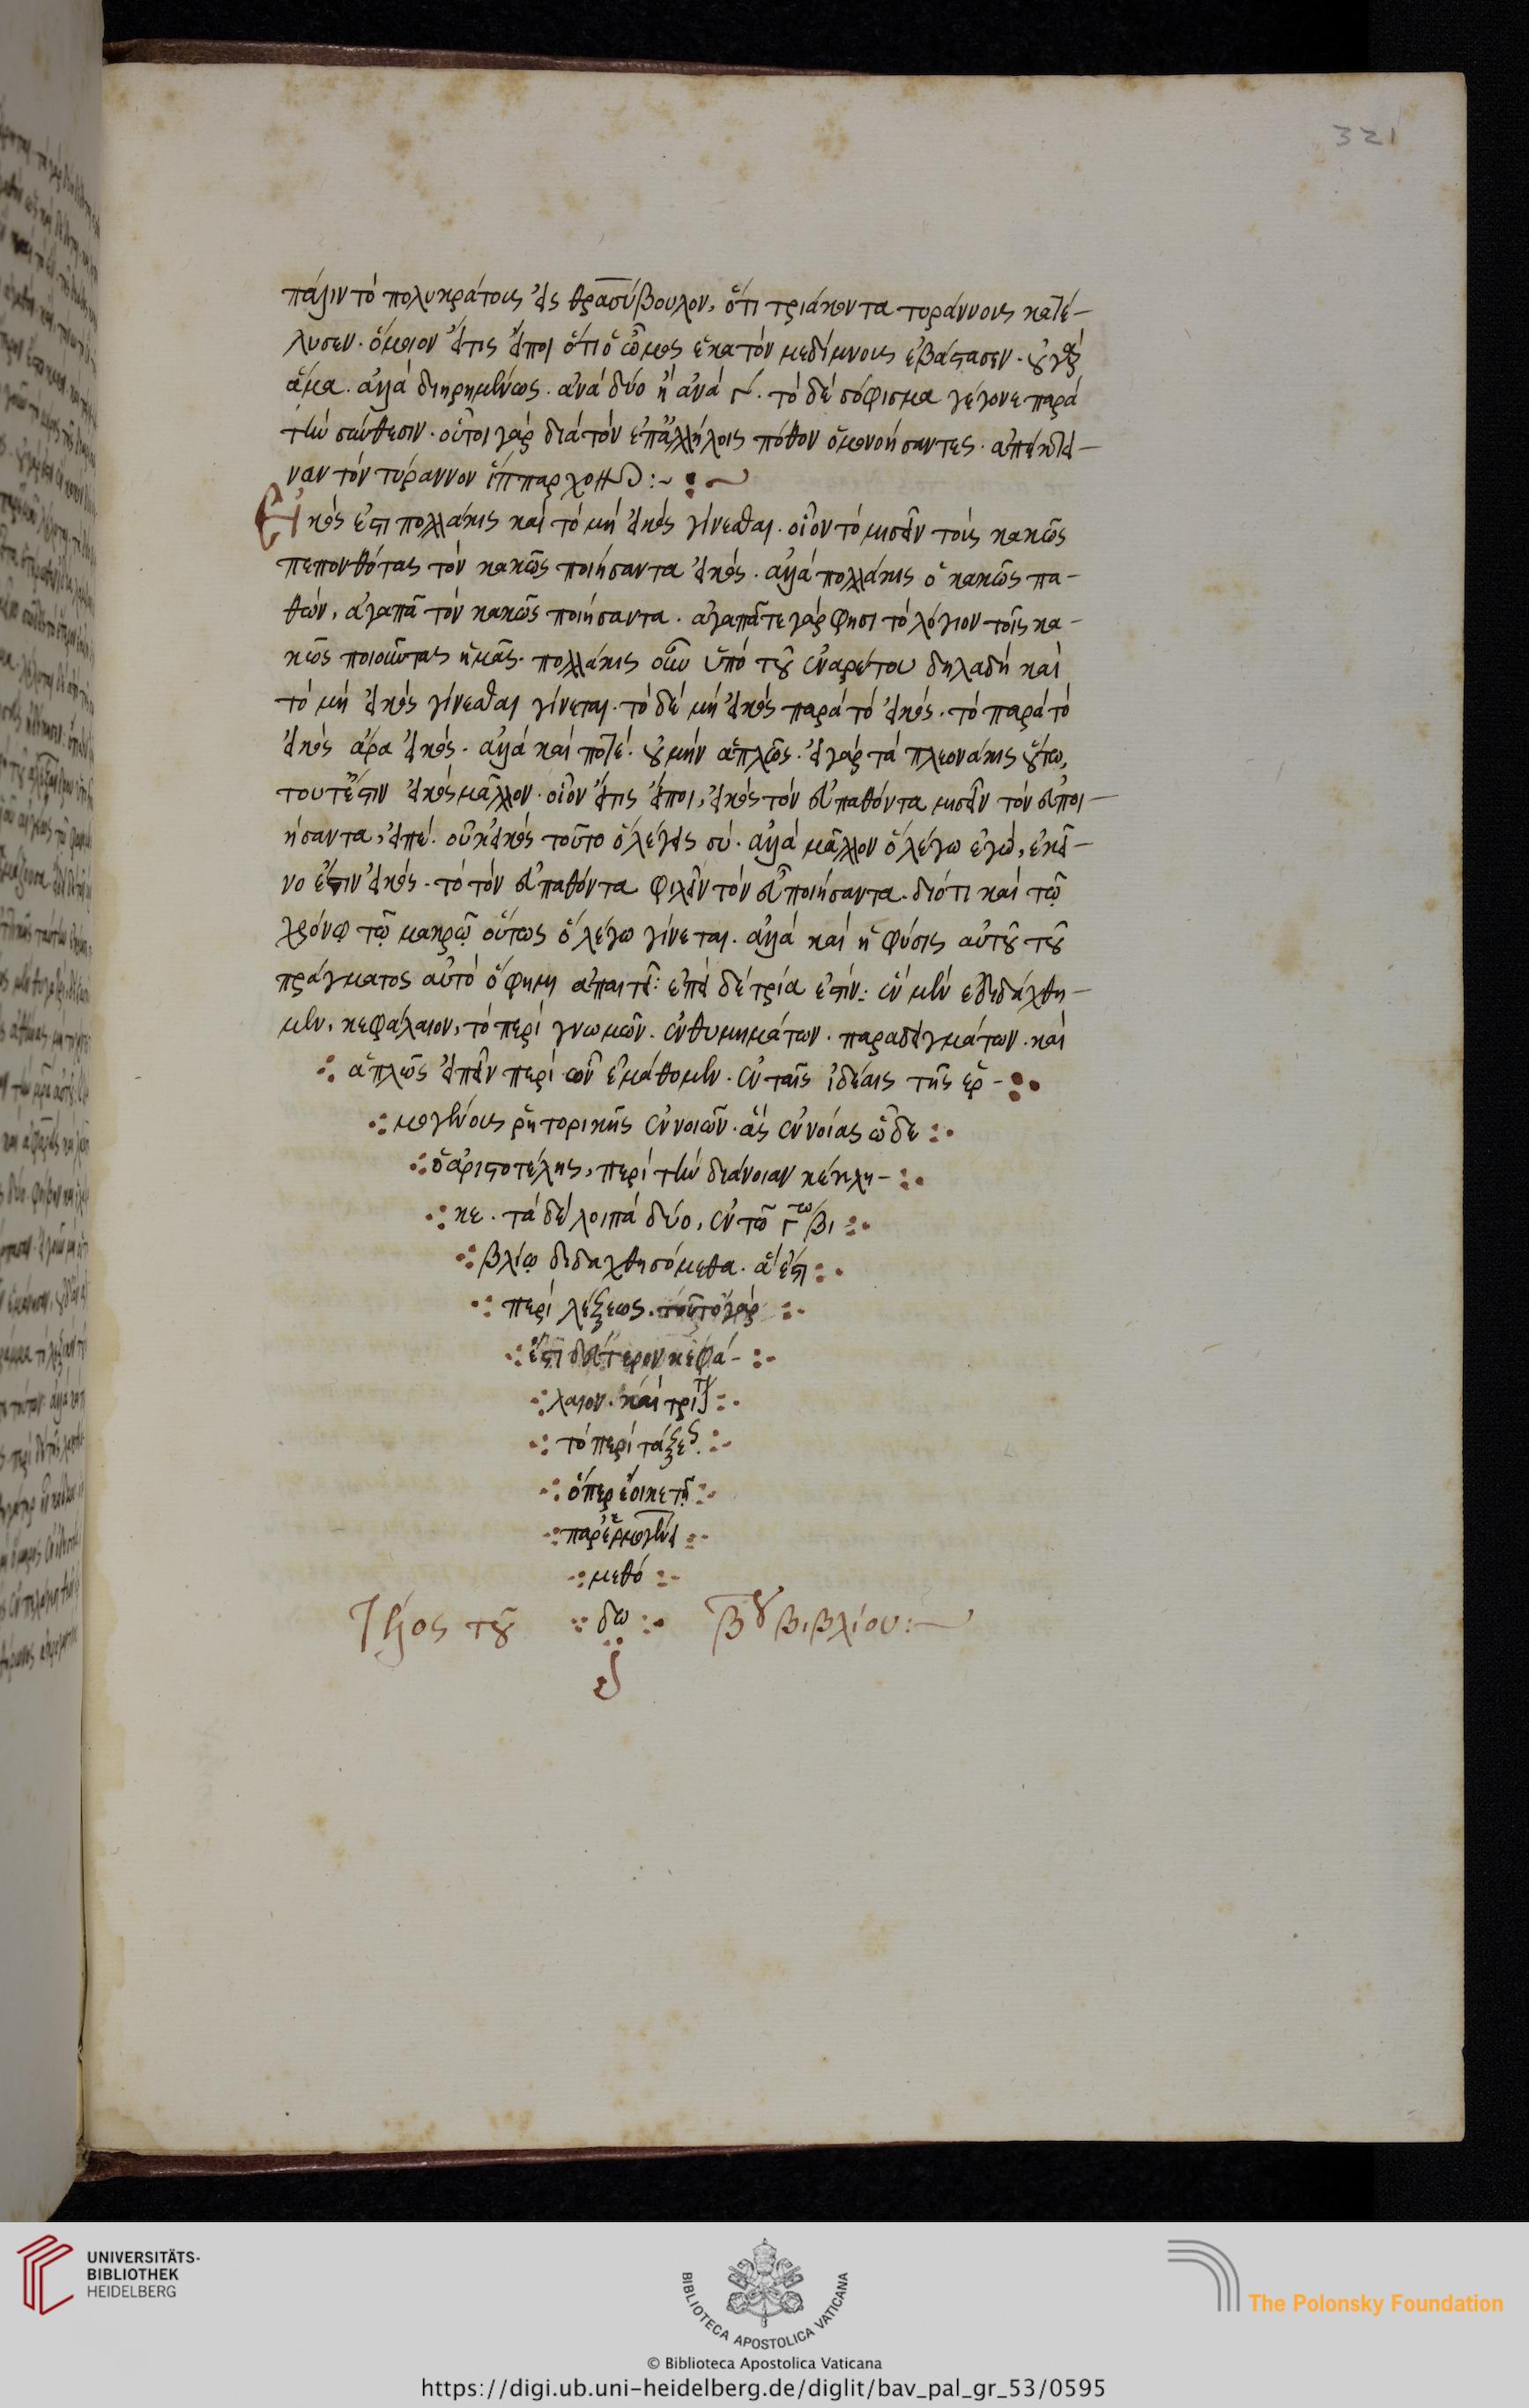 321
πάλιν τὸ πολυκράτους εἰς θρασύβουλον, ὅτι τριάκοντα τυράννους κατέ-
λυσεν. ὅμοιον εἴτις εἴποι ὅτι ὁ ὦμος ἑκατὸν μεδίμνους ἐβάστασεν. οὐ γὰρ
ἅμα. ἀλλὰ διῃρημένως. ἀνὰ δύο ἢ ἀνὰ γ. τὸ δὲ σόφισμα γέγονε παρὰ
τὴν σύνθεσιν. οὗτοι γὰρ διὰ τὸν ἐπ' ἀλλήλοις πόθον ὁμονοήσαντες. ἀπέκτει-
ναν τὸν τύραννον ἵππαρχον :~
Εἰκός ἐστι πολλάκις καὶ τὸ μὴ εἰκὸς γίνεσθαι. οἷον τὸ μισεῖν τοὺς κακῶς
πεπονθότας τὸν κακῶς ποιήσαντα εἰκός. ἀλλὰ πολλάκις ὁ κακῶς πα-
θών, ἀγαπᾶ τὸν κακῶς ποιήσαντα. ἀγαπᾶτε γάρ φησι τὸ λόγιον τοῖς κα-
κῶς ποιοῦντας ἡμᾶς. πολλάκις οὖν ὑπὸ τοῦ ἐναρέτου δηλαδὴ καὶ
τὸ μὴ εἰκὸς γίνεσθαι γίνεται. τὸ δὲ μὴ εἰκὸς παρὰ τὸ εἰκός. τὸ παρὰ τὸ
εἰκὸς ἄρα εἰκός. ἀλλὰ καὶ ποτέ. οὐ μὴν ἁπλῶς. εἰ γὰρ τὰ πλεονάκις οὕτω,
τουτέστιν εἰκὸς μᾶλλον. οἷον εἴτις εἴποι, εἰκὸς τὸν εὖ παθόντα μισεῖν τὸν εὖ ποι-
ήσαντα, εἰπέ. οὐκ εἰκὸς τοῦτο ὃ λέγεις σύ. ἀλλὰ μᾶλλον ὃ λέγω ἐγώ, ἐκεῖ-
νο ἐστιν εἰκός. τὸ τὸν εὖ παθόντα φιλεῖν τὸν εὖ ποιήσαντα. διότι καὶ τῷ
χρόνῳ τῷ μακρῷ οὕτως ὃ λέγω γίνεται. ἀλλὰ καὶ ἡ φύσις αὐτοῦ τοῦ
πράγματος αὐτὸ ὅ φημι ἀπαιτεῖ: ἐπεὶ δὲ τρία ἐστίν: ἓν μὲν ἐδιδάχθη-
μεν, κεφάλαιον, τὸ περὶ γνωμῶν. ἐνθυμημάτων. παραδειγμάτων. καὶ
ἁπλῶς εἰπεῖν περὶ ὧν ἐμάθομεν. ἐν ταῖς ἰδέαις τῆς ἑρ-
μογένους ῥητορικῆς ἐννοιῶν. ἃς ἐννοίας ὧδε
ὁ ἀριστοτέλης, περὶ τὴν διάνοιαν κέκλη-
κε. τὰ δὲ λοιπὰ δύο, ἐν τῶ γτω βι
βλίῳ διδαχθησόμεθα. ἅ ἐστι
περὶ λέξεως. τοῦτο γάρ
ἐστι δεύτερον κεφά-
λαιον. καὶ τρίτ
τὸ περὶ τάξεως.
ὅπερ ἔοικε τῇ
παρ' ἑρμογένει
μεθό
δω
Τέλος τοῦ βου βιβλίου:
UNIVERSITÄTS-
BIBLIOTHEK
HEIDELBERG
BIBLIOTECA APOSTOLICA VATICANA
The Polonsky Foundation
© Biblioteca Apostolica Vaticana
https://digi.ub.uni-heidelberg.de/diglit/bav_pal_gr_53/0595